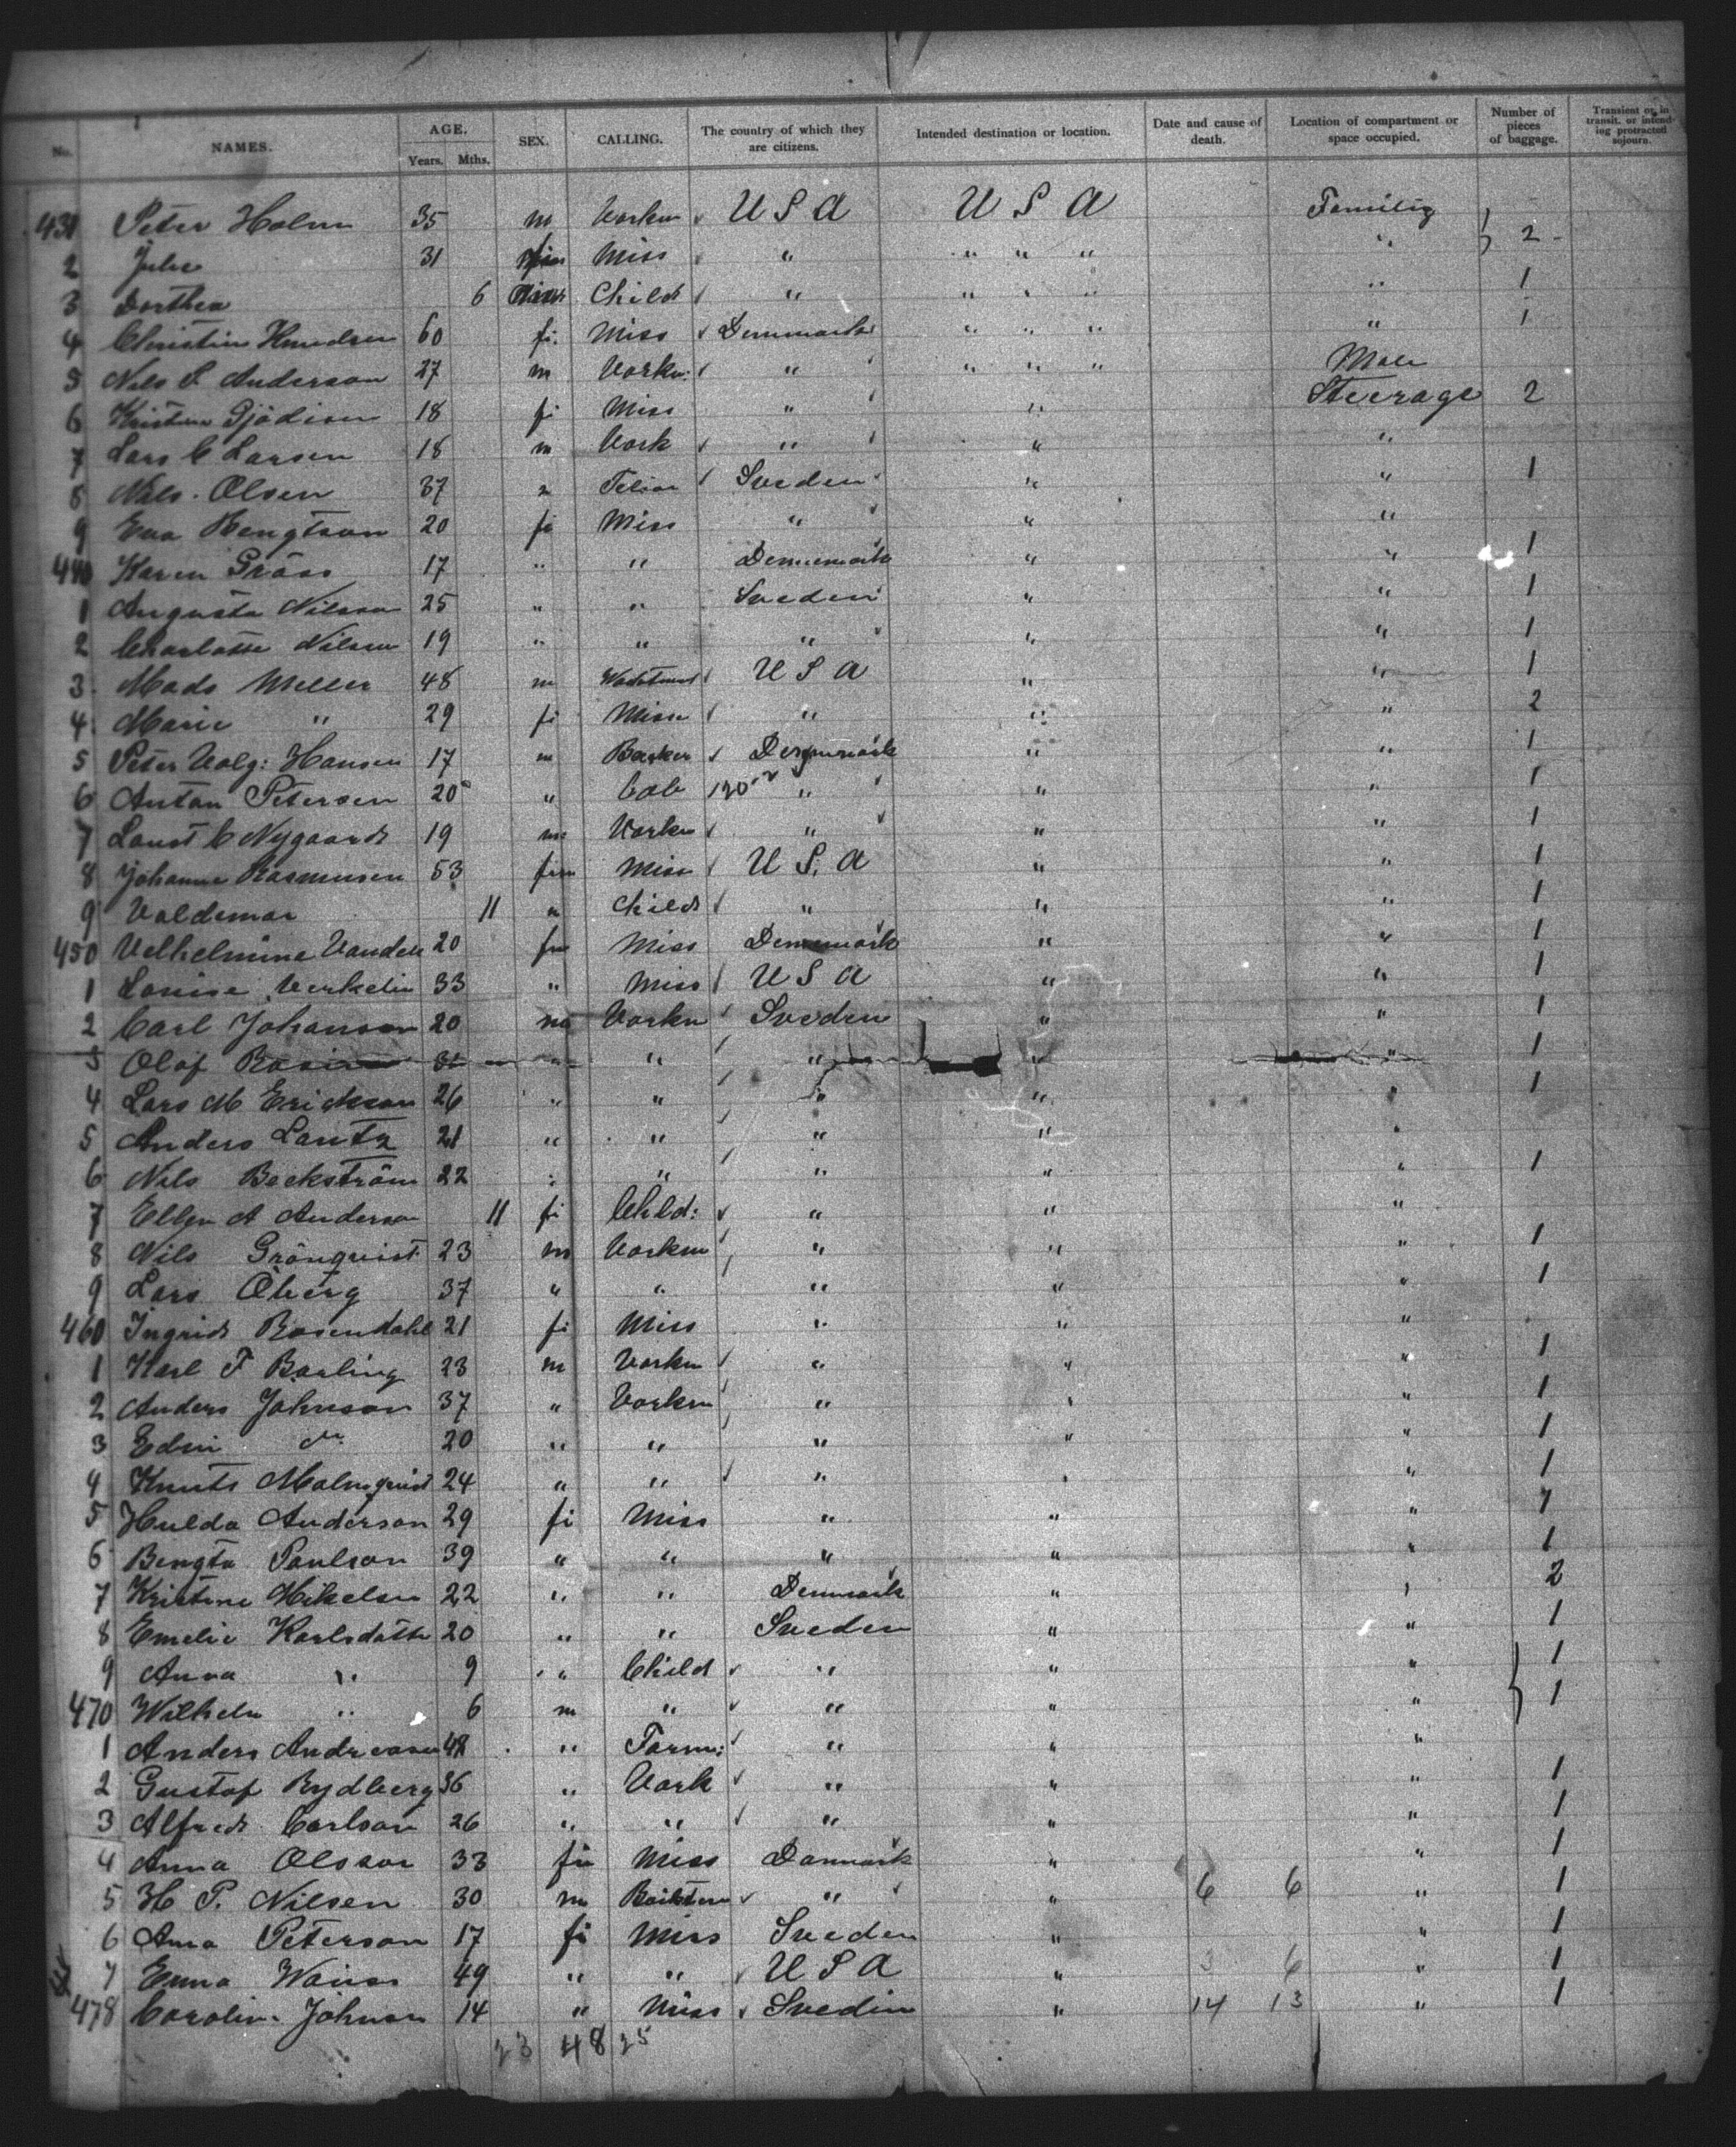 No. NAMES. AGE. Years. Mths. SEX. CALLING. The country of which they are citizens. Intended destination or location. Date and cause of death. Location of compartment or space occupied. Number of pieces of baggage. Transient or in transit, or intending protracted sojourn.
431 Peter Holm 35 m Workm U S A U S A Familiy
2 Julie 31 Miss " " " " " } 2
3 Dorthea 6 Child " " " " " 1
4 Christine Knudsen 60 fi. Miss Denmark " " " " 1
5 Nils P Anderson 27 m Workm: " " " " Male
6 Kristine 18 fi Miss " " Steerage 2
7 Lars C Larsen 18 m Work " " "
8 Nils Olsen 37 m Sveden " " 1
9 Eva Bengtson 20 fi Miss " " "
440 Karen 17 " " Denmark " " 1
1 Augusta Nilsson 25 " " Sveden " " 1
2 Charlotte Nilsson 19 " " " " " 1
3 Mads Meller 48 m U S A " " 1
4 Marie " 29 fi Miss " " " 2
5 Peter Valg: Hansen 17 m Denmark " " 1
6 Anton Petersen 20 " 120 " " " 1
7 Laust C Nygaard 19 m Workm " " " 1
8 Johanne Rasmussen 53 fem Miss U S. A " " 1
9 Valdemar 11 " Child " " " 1
450 Velhelmine 20 fm Miss Denmark " " 1
1 Louise 33 " Miss U S A " " 1
2 Carl Johanson 20 m Workm Sveden " " 1
3 Olof 31 " " " " " 1
4 Lars M Erickson 26 " " " " " 1
5 Anders Lantz 21 " " " " "
6 Nils Beckström 22 " " " " " 1
7 Ellen A Anderson 11 fi Child: " " "
8 Nils Grönquist 23 m Workm " " " 1
9 Lars Öberg 37 " " " " " 1
460 Ingrid Rosendahl 21 fi Miss " " "
1 Karl F 23 m Workm " " " 1
2 Anders Johnson 37 " Workm " " " 1
3 Edvin do 20 " " " " " 1
4 Knut Malmquist 24 " " " " " 1
5 Hulda Anderson 29 fi Miss " " " 1
6 Bengta Paulson 39 " " " " " 1
7 Kristine Mikelsen 22 " " Denmark " " 2
8 Emelie Karlsdatter 20 " " Sveden " " 1
9 Anna " 9 " Child " " " 1
470 Wilhelm " 6 m " " " " } 1
1 Anders Andreasen 48 " Farm: " " "
2 Gustaf Rydberg 36 " Work " " " 1
3 Alfred Carlson 26 " " " " " 1
4 Anna Olsson 33 fi Miss Danmark " " 1
5 H P. Nilsen 30 m " " 6 6 " 1
6 Anna Peterson 17 fi Miss Sveden " " 1
7 Emma 49 " " U S A " 3 6 " 1
478 Carolin Johnson 14 " Miss Sveden " 14 13 " 1
23 48 25